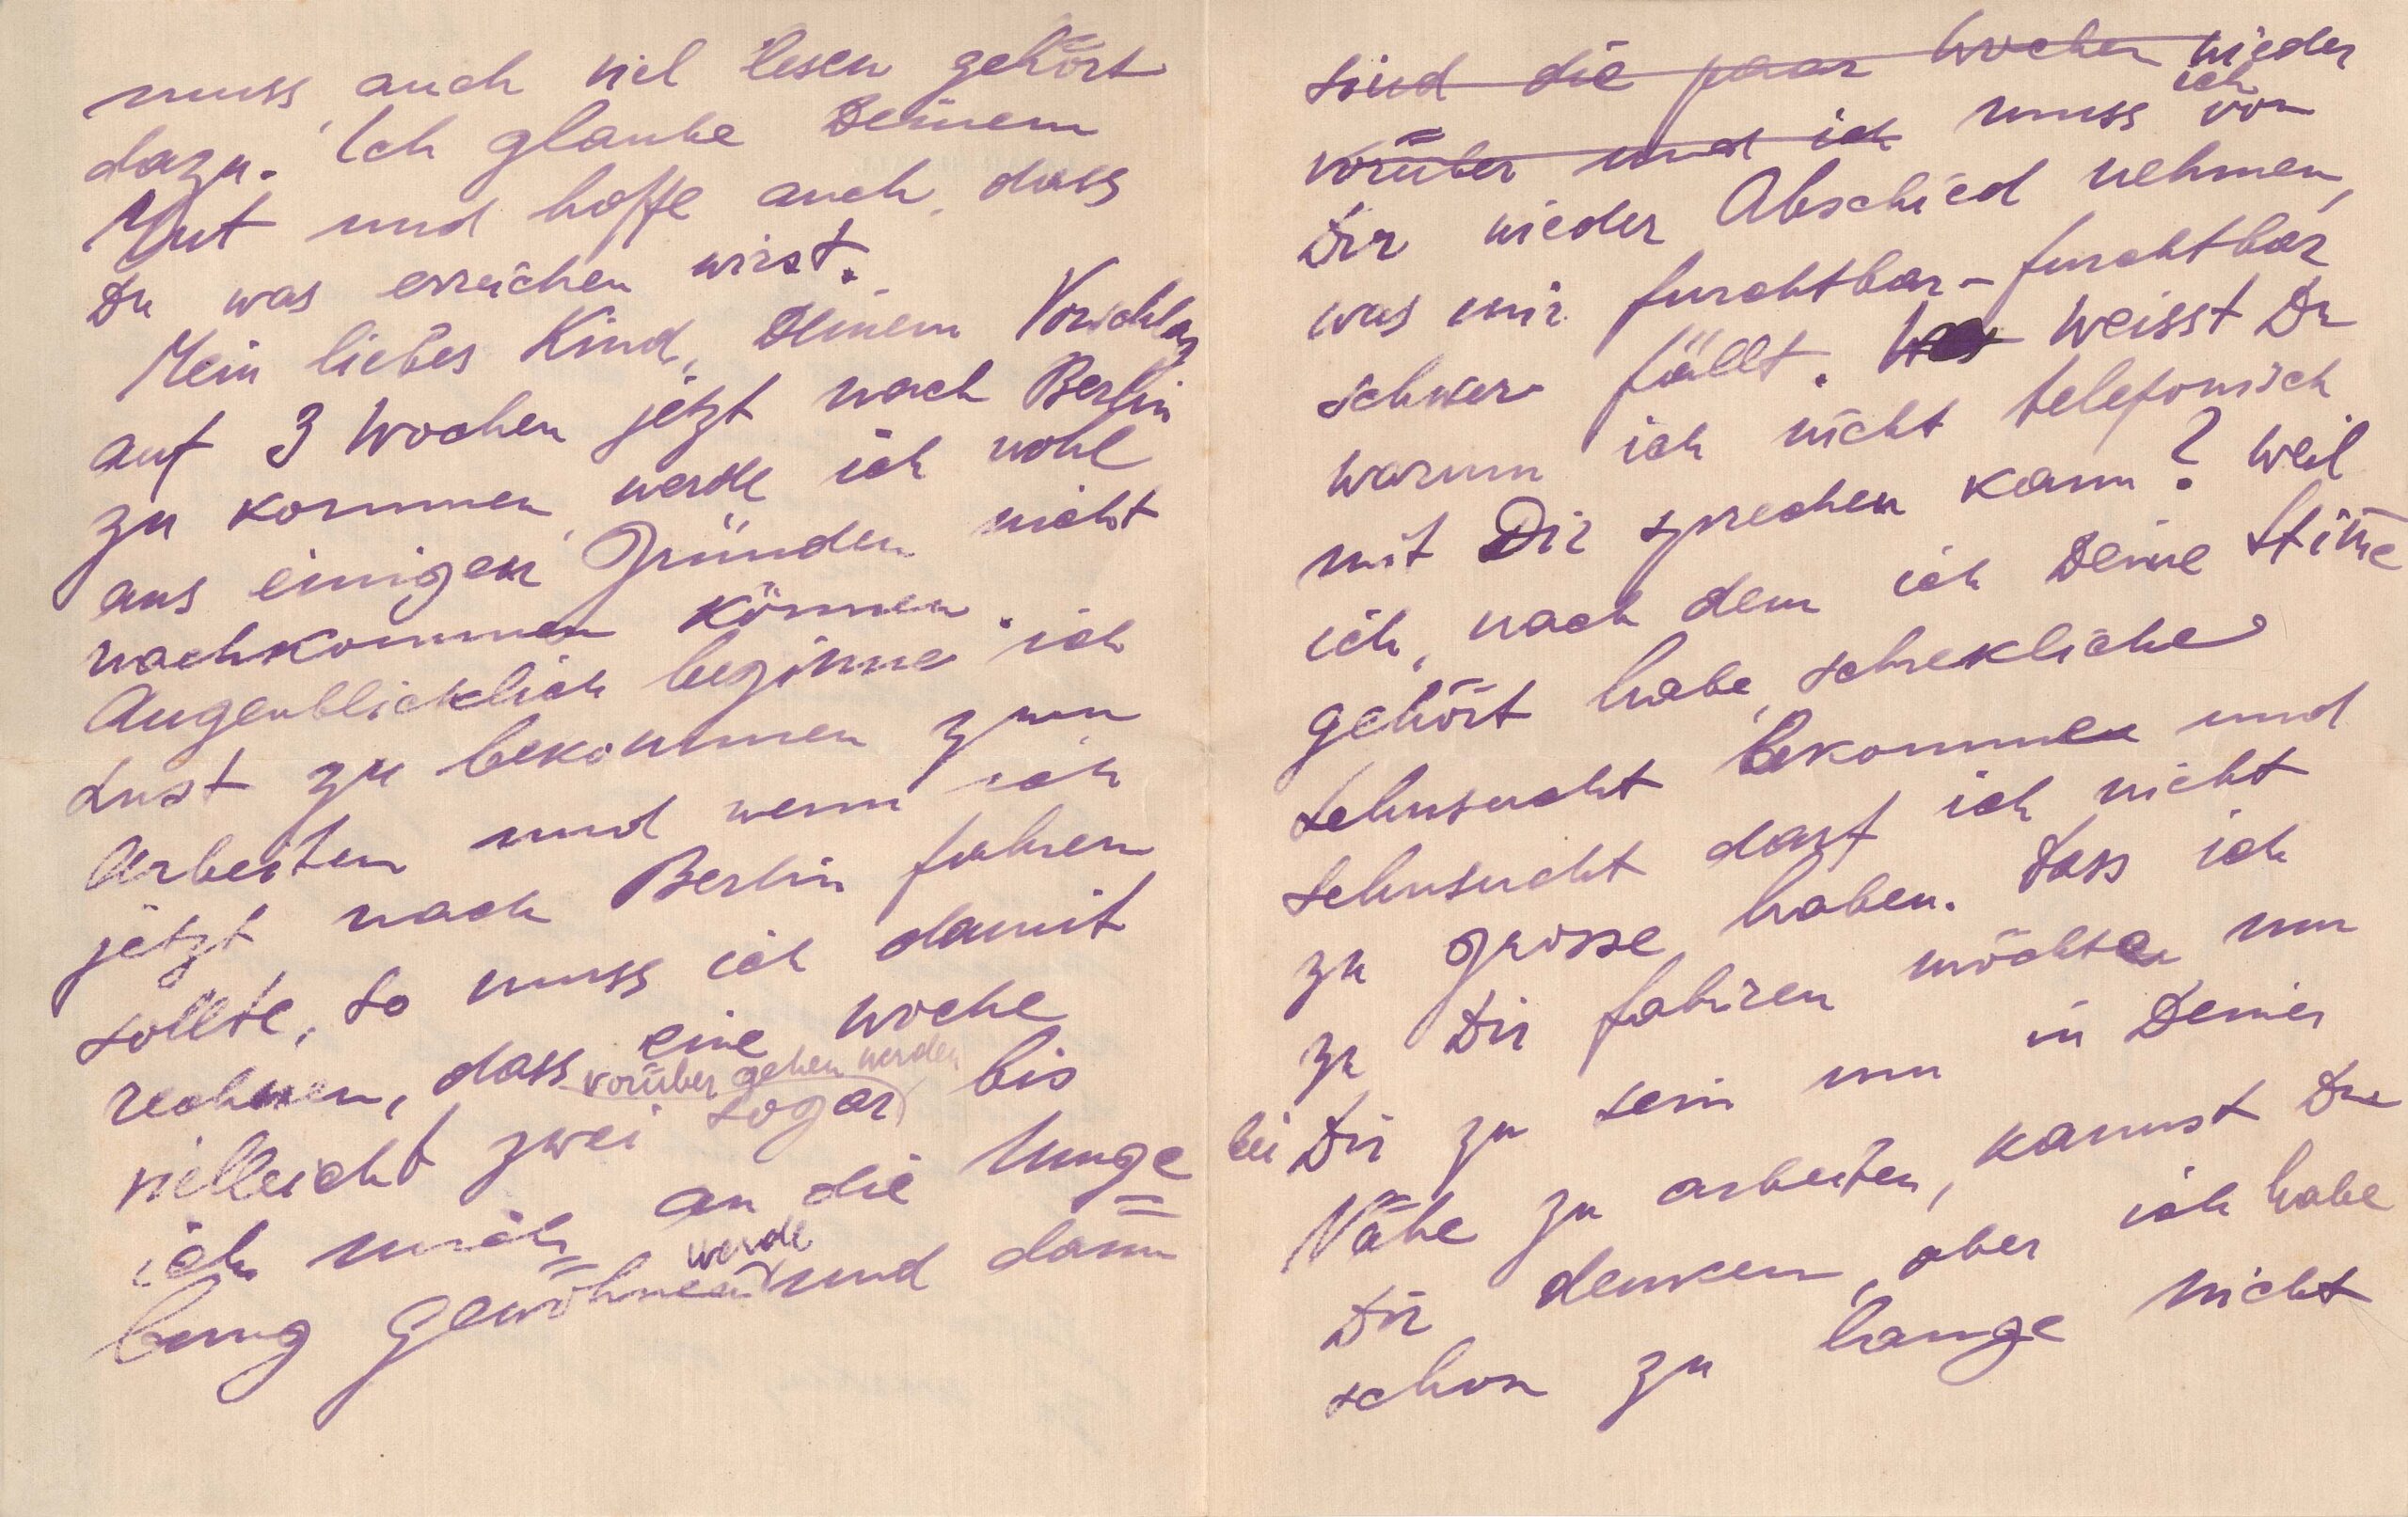 muss auch viel lesen gehört
dazu. Ich glaube Deinem
Mut und hoffe auch, dass
Du was erreichen wirst.
Mein liebes Kind, Deinem Vorschlag
auf 3 Wochen jetzt nach Berlin
zu kommen, werde ich wohl
aus einigen Gründen nicht
nachkommen können.
Augenblicklich beginne ich
Lust zu bekommen zum
Arbeiten und wenn ich
jetzt nach Berlin fahren
sollte, so muss ich damit
rechnen, dass eine Woche
vorüber gehen werden
vielleicht zwei sogar bis
ich mich an die Umge=
werde
bung gewöhnen und dann
sind die paar Wochen wieder
ich
vorüber und ich muss von
Dir wieder Abschied nehmen,
was mir furchtbar-furchtbar
schwer fällt. Was Weisst Du
warum ich nicht telefonisch
mit Dir sprechen kann? Weil
ich, nach dem ich Deine Stim̄e
gehört habe, schrekliche
Sehnsucht bekommen und
Sehnsucht darf ich nicht
zu grosse haben. Dass ich
zu Dir fahren möchte um
bei Dir zu sein um in Deiner
Nähe zu arbeiten, kannst Du
Dir denken, aber ich habe
schon zu lange nicht